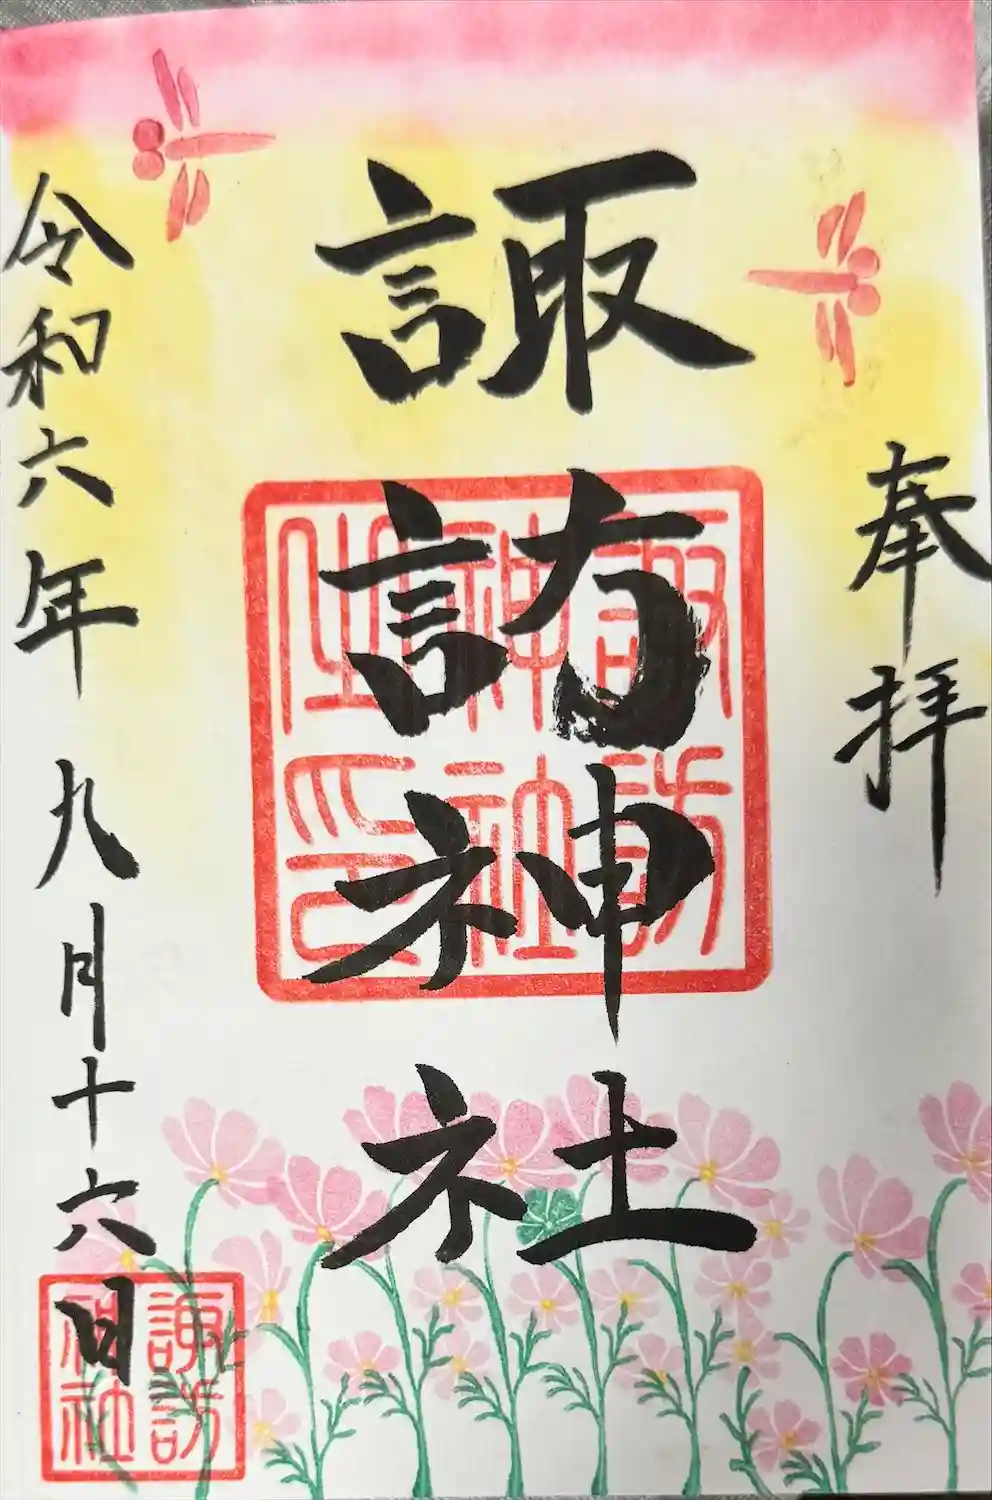 奉拝
諏訪神社
諏訪
神社
之印
令和六年九月十六日
諏訪
神社